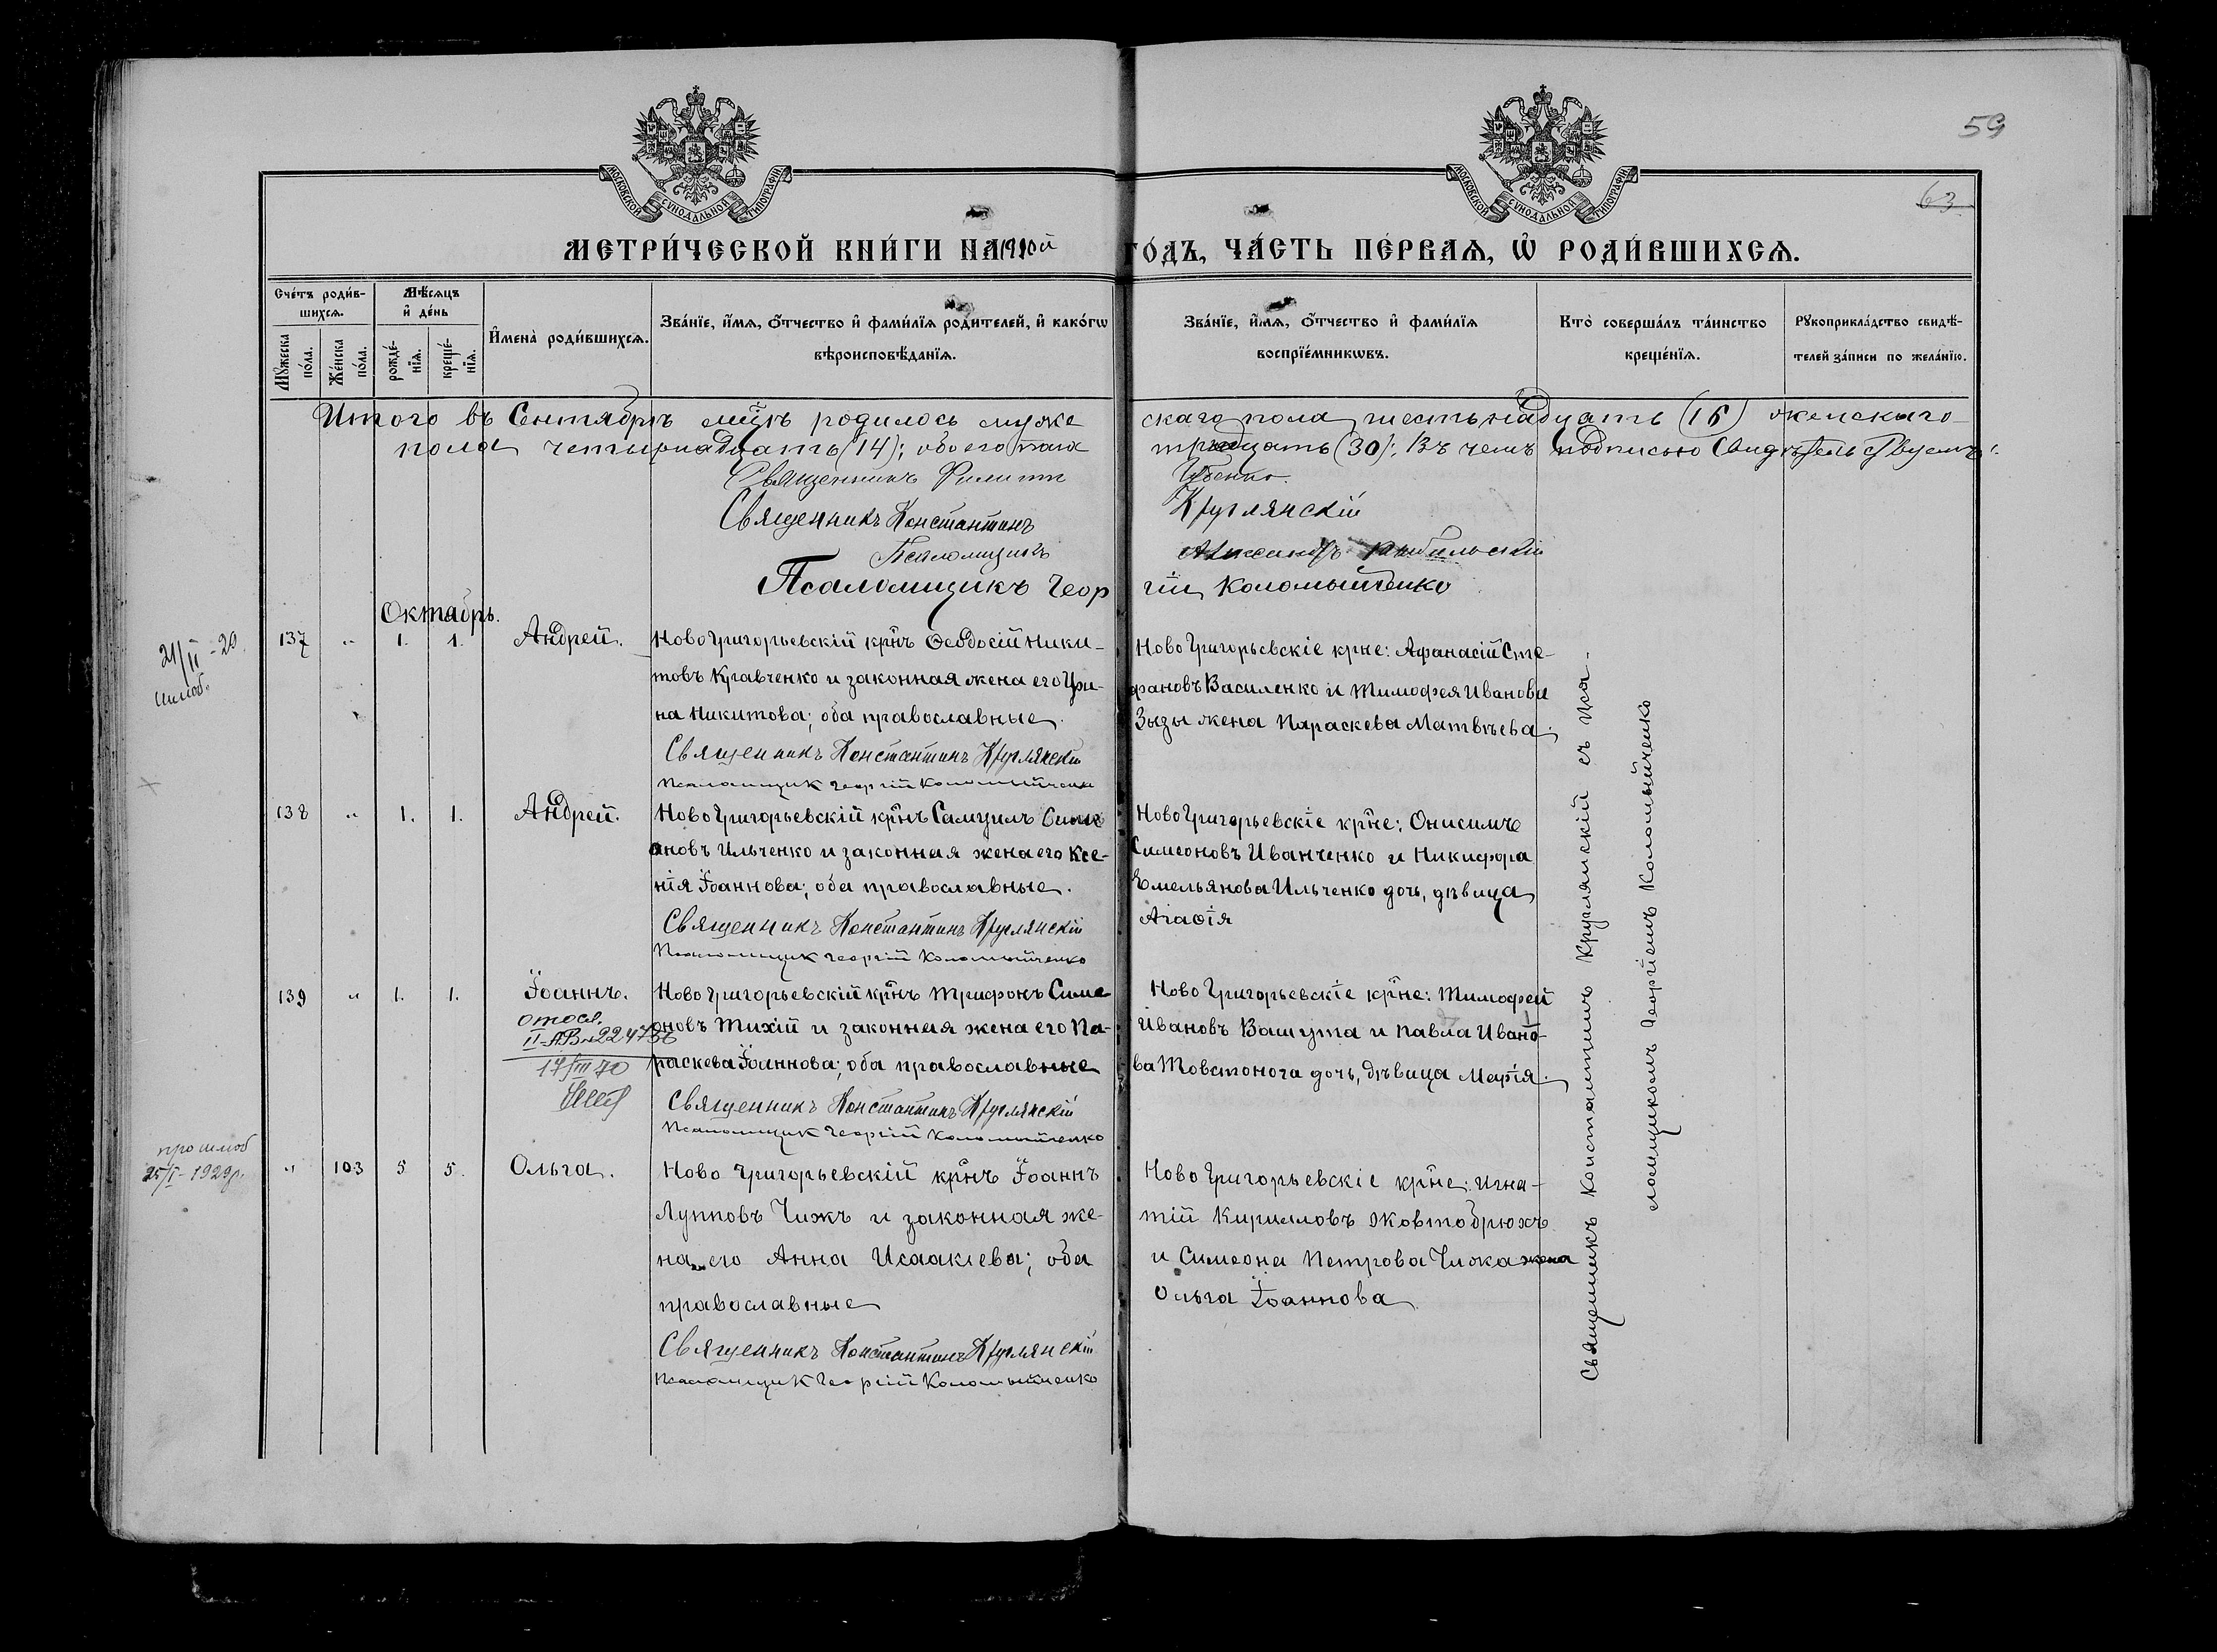 59
63
МОСКОВСКОЙ СѴНОДАЛЬНОЙ ТИПОГРАФІИ
МОСКОВСКОЙ СѴНОДАЛЬНОЙ ТИПОГРАФІИ
МЕТРИ́ЧЕСКОЙ КНИ́ГИ НА 1910й ГО́ДЪ, ЧА́СТЬ ПЕ́РВАѦ, Ѡ РОДИ́ВШИХСѦ.
Сче́тъ роди́в-
шихсѧ.
Мꙋжеска по́ла.
Же́нска по́ла.
Мѣ́сѧцъ и҆ де́нь
рожде́-нїѧ.
креще́-нїѧ.
И҆мена̀ роди́вшихсѧ.
Зва́нїе, и҆́мѧ, ѻ҆́тчество и҆ фами́лїѧ роди́телей, и҆ како́гѡ
вѣроисповѣ́данїѧ.
Зва́нїе, и҆́мѧ, ѻ҆́тчество и҆ фами́лїѧ
воспрїе́мникѡвъ.
Кто̀ соверша́лъ та́инство
креще́нїѧ.
Рꙋкоприкла́дство свидѣ́-
телей за́писи по жела́нїю.
Итого въ Сентябрѣ мцѣ родилось муже ского пола шестьнадцать (16) женскаго
пола четырнадцать (14); обоего пола тридцать (30). Въ чемъ подписью Свидѣтельствуемъ:
Священникъ Филиппъ
Священникъ Константинъ Круглянскій
Псаломщикъ Александръ
Псаломщикъ Геор гій Коломыйченко
Октябрь.
21/II-29.
137 " 1. 1. Андрей.
НовоГригорьевскій крнъ Ѳеодосій Ники-
товъ Кравченко и законная жена его Ири-
на Никитова; оба православные.
Священникъ Константинъ Круглянскій
Псаломщик Георгій Коломыйченко
НовоГригорьевскіе крне: Афанасій Сте-
фановъ Василенко и Тимофея Иванова
Зызы жена Параскева Матвѣева.
138 " 1. 1. Андрей.
НовоГригорьевскій крнъ Самуилъ Симе
оновъ Ильченко и законная жена его Ксе-
нія Іоаннова; оба православные.
Священникъ Константинъ Круглянскій
Псаломщик Георгій Коломыйченко
НовоГригорьевскіе крне: Онисимъ
Симеоновъ Иванченко и Никифора
Емельянова Ильченко дочь, дѣвица
Агафія
139 " 1. 1. Іоаннъ.
II-АВ№224736
17/III 70
НовоГригорьевскій крнъ Трифонъ Симе
оновъ Тихій и законная жена его Па-
раскева Іоаннова; оба православные
Священникъ Константинъ Круглянскій
Псаломщик Георгій Коломыйченко
НовоГригорьевскіе крне: Тимофей
Ивановъ Вашута и Павла Ивано-
ва Товстонога дочь, дѣвица Марія.
25/I-1929г.
" 103 5 5. Ольга.
Ново Григорьевскій крнъ Іоаннъ
Лупповъ Чижъ и законная же-
на его Анна Исаакіева; оба
православные
Священникъ Константинъ Круглянскій
Псаломщик Георгій Коломыйченко
НовоГригорьевскіе крне: Игна-
тій Кирилловъ Жовтобрюхъ
и Симеона Петрова Чижа жена
Ольга Іоаннова
Священникъ Константинъ Круглянскій съ Пса-
ломщикомъ Георгіемъ Коломыйченко